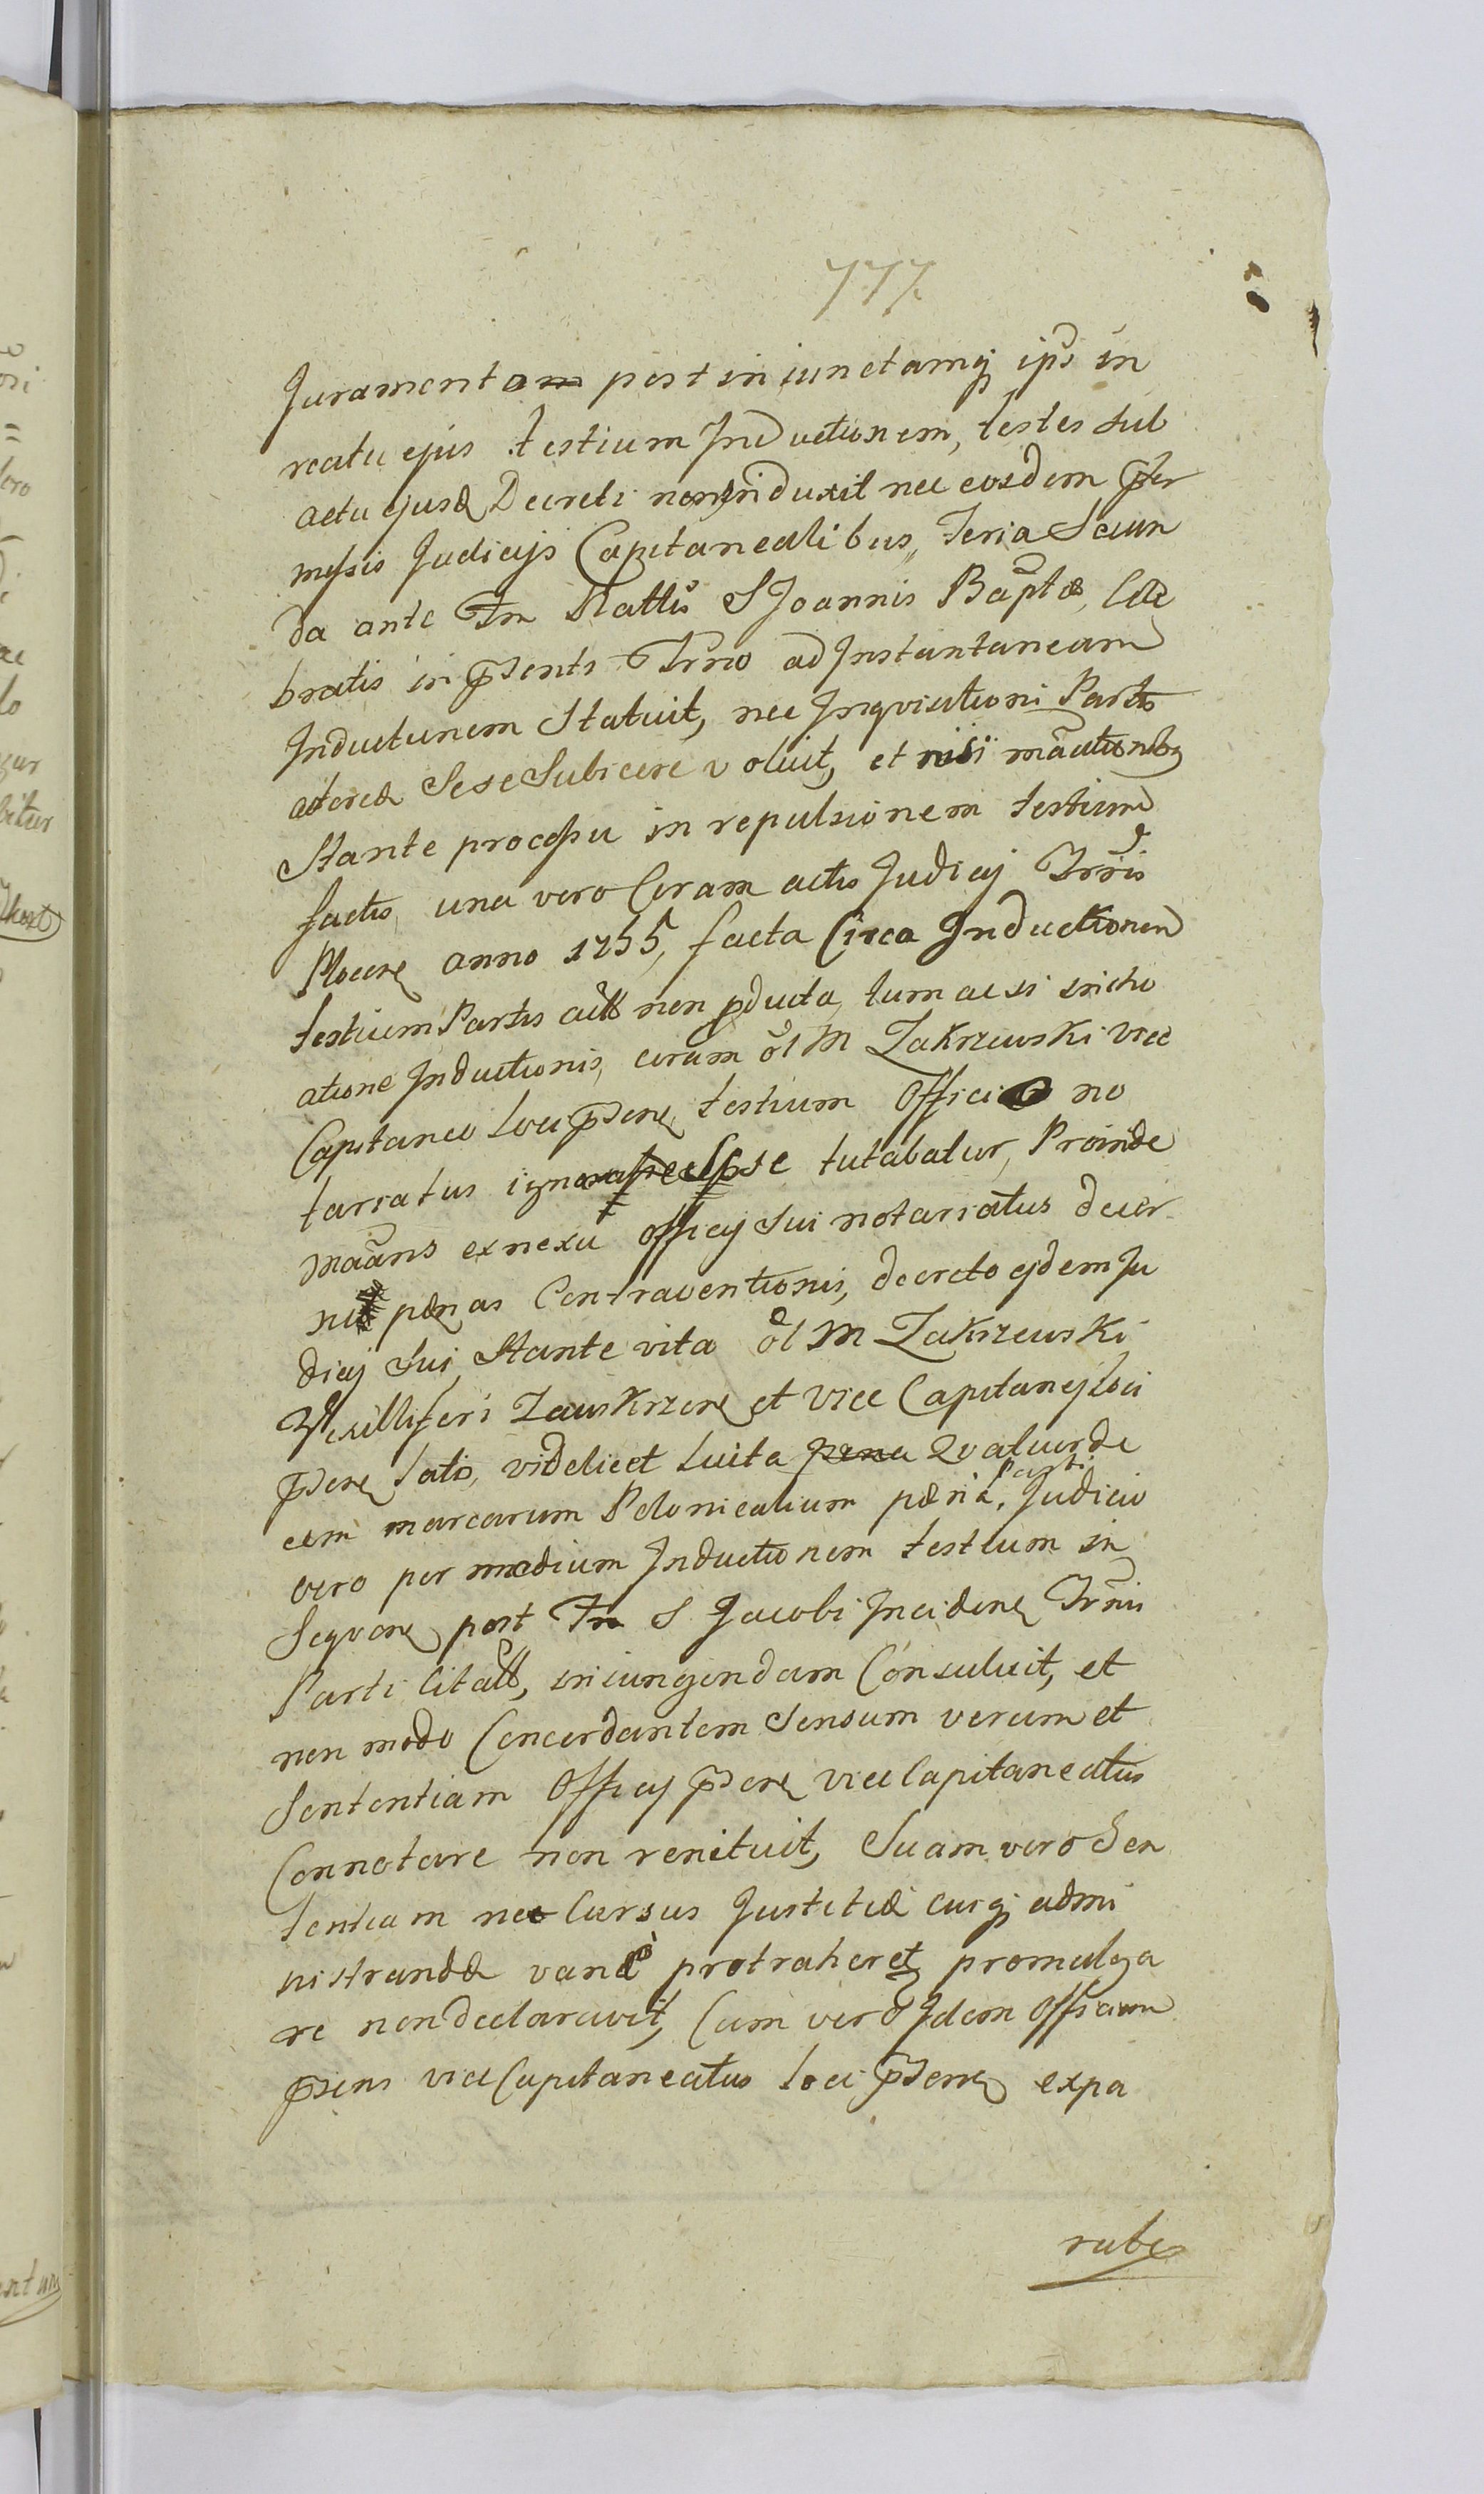 777.
Juramentam post iniunctamq ipsi in
reatu ejus testium Inductionem, testes sub
actu ejusd Decreti non induxit nec eosdem prae
missis Judicijs Capitanealibus, Feria Secun
da ante Fm Nattis S Joannis Baptae, Cele
bratis in psenti Trno ad Instantaneam
Inductionem Statuit, nec Inqvisitioni Partis
actoreae Sese Subicere voluit, et nisi maationibq
Stante processu in repulsionem testium
factis, una vero Coram actis Judicij Trris
Plocen anno 1755, facta Circa Inductionem
testium Partis citt non pducta, tum ac si incho
atione Inductionis, coram ol M Zakrzewski vice
Capitaneo Loci psen, testium Officio no
tariatus se tutabatur, Proinde
maans ex nexu officij sui notariatus decer
ni paenas Contraventionis, decreto ejdem Ju
dicij sui, Stante vita ol M Zakrzewski
Vexilliferi Zawskrzen et vice Capitanej Loci
psen latis, videlicet luita paena Qvatuorde
cem marcarum Polonicalium paena, Parti Judicio
vero per medium Inductionem testium in
Seqven post Fm S Jacobi Inciden Trnis
Parti Citatt, iniungendam Consuluit, et
non modo Concordantem Sensum verum et
Sententiam Officij psen vice Capitaneatus
Connotare non renituit, Suam vero Sen
tentiam nec Cursus Justitiae cuiq admi
nistrandae vane protraheret promulga
re non declaravit, Cum vero Idem Officium
psens vice Capitaneatus Loci psen expa
rubes